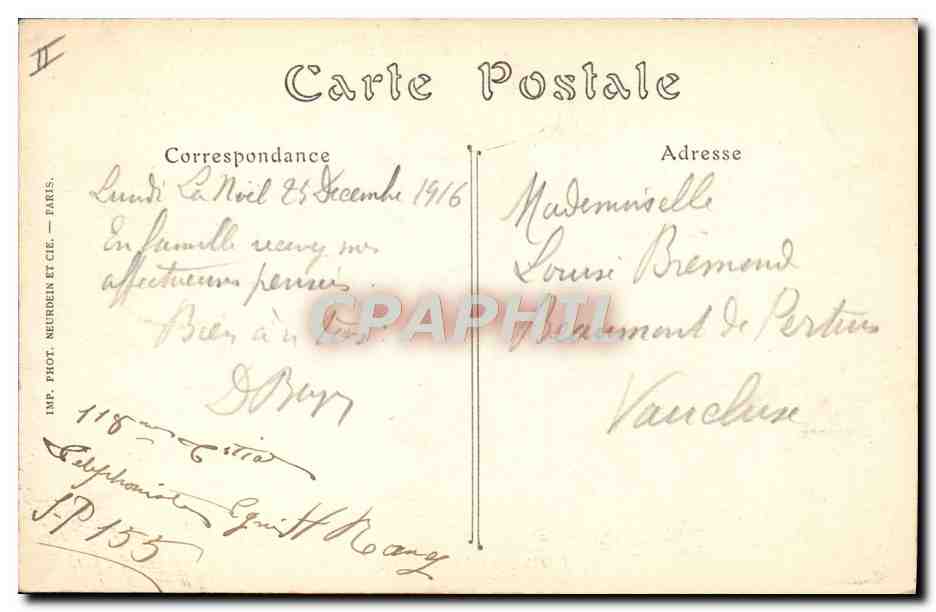 II
Carte Postale
Correspondance
Lundi La Noël 25 Decembre 1916
En famille recevez nos
affectueuses pensées.
Bien à v
118
Telephoniste
S-P 155
Adresse
Mademoiselle
Louise Brémond
Beaumont de Pertuis
Vaucluse
IMP. PHOT. NEURDEIN ET CIE. — PARIS.
CPAPHIL